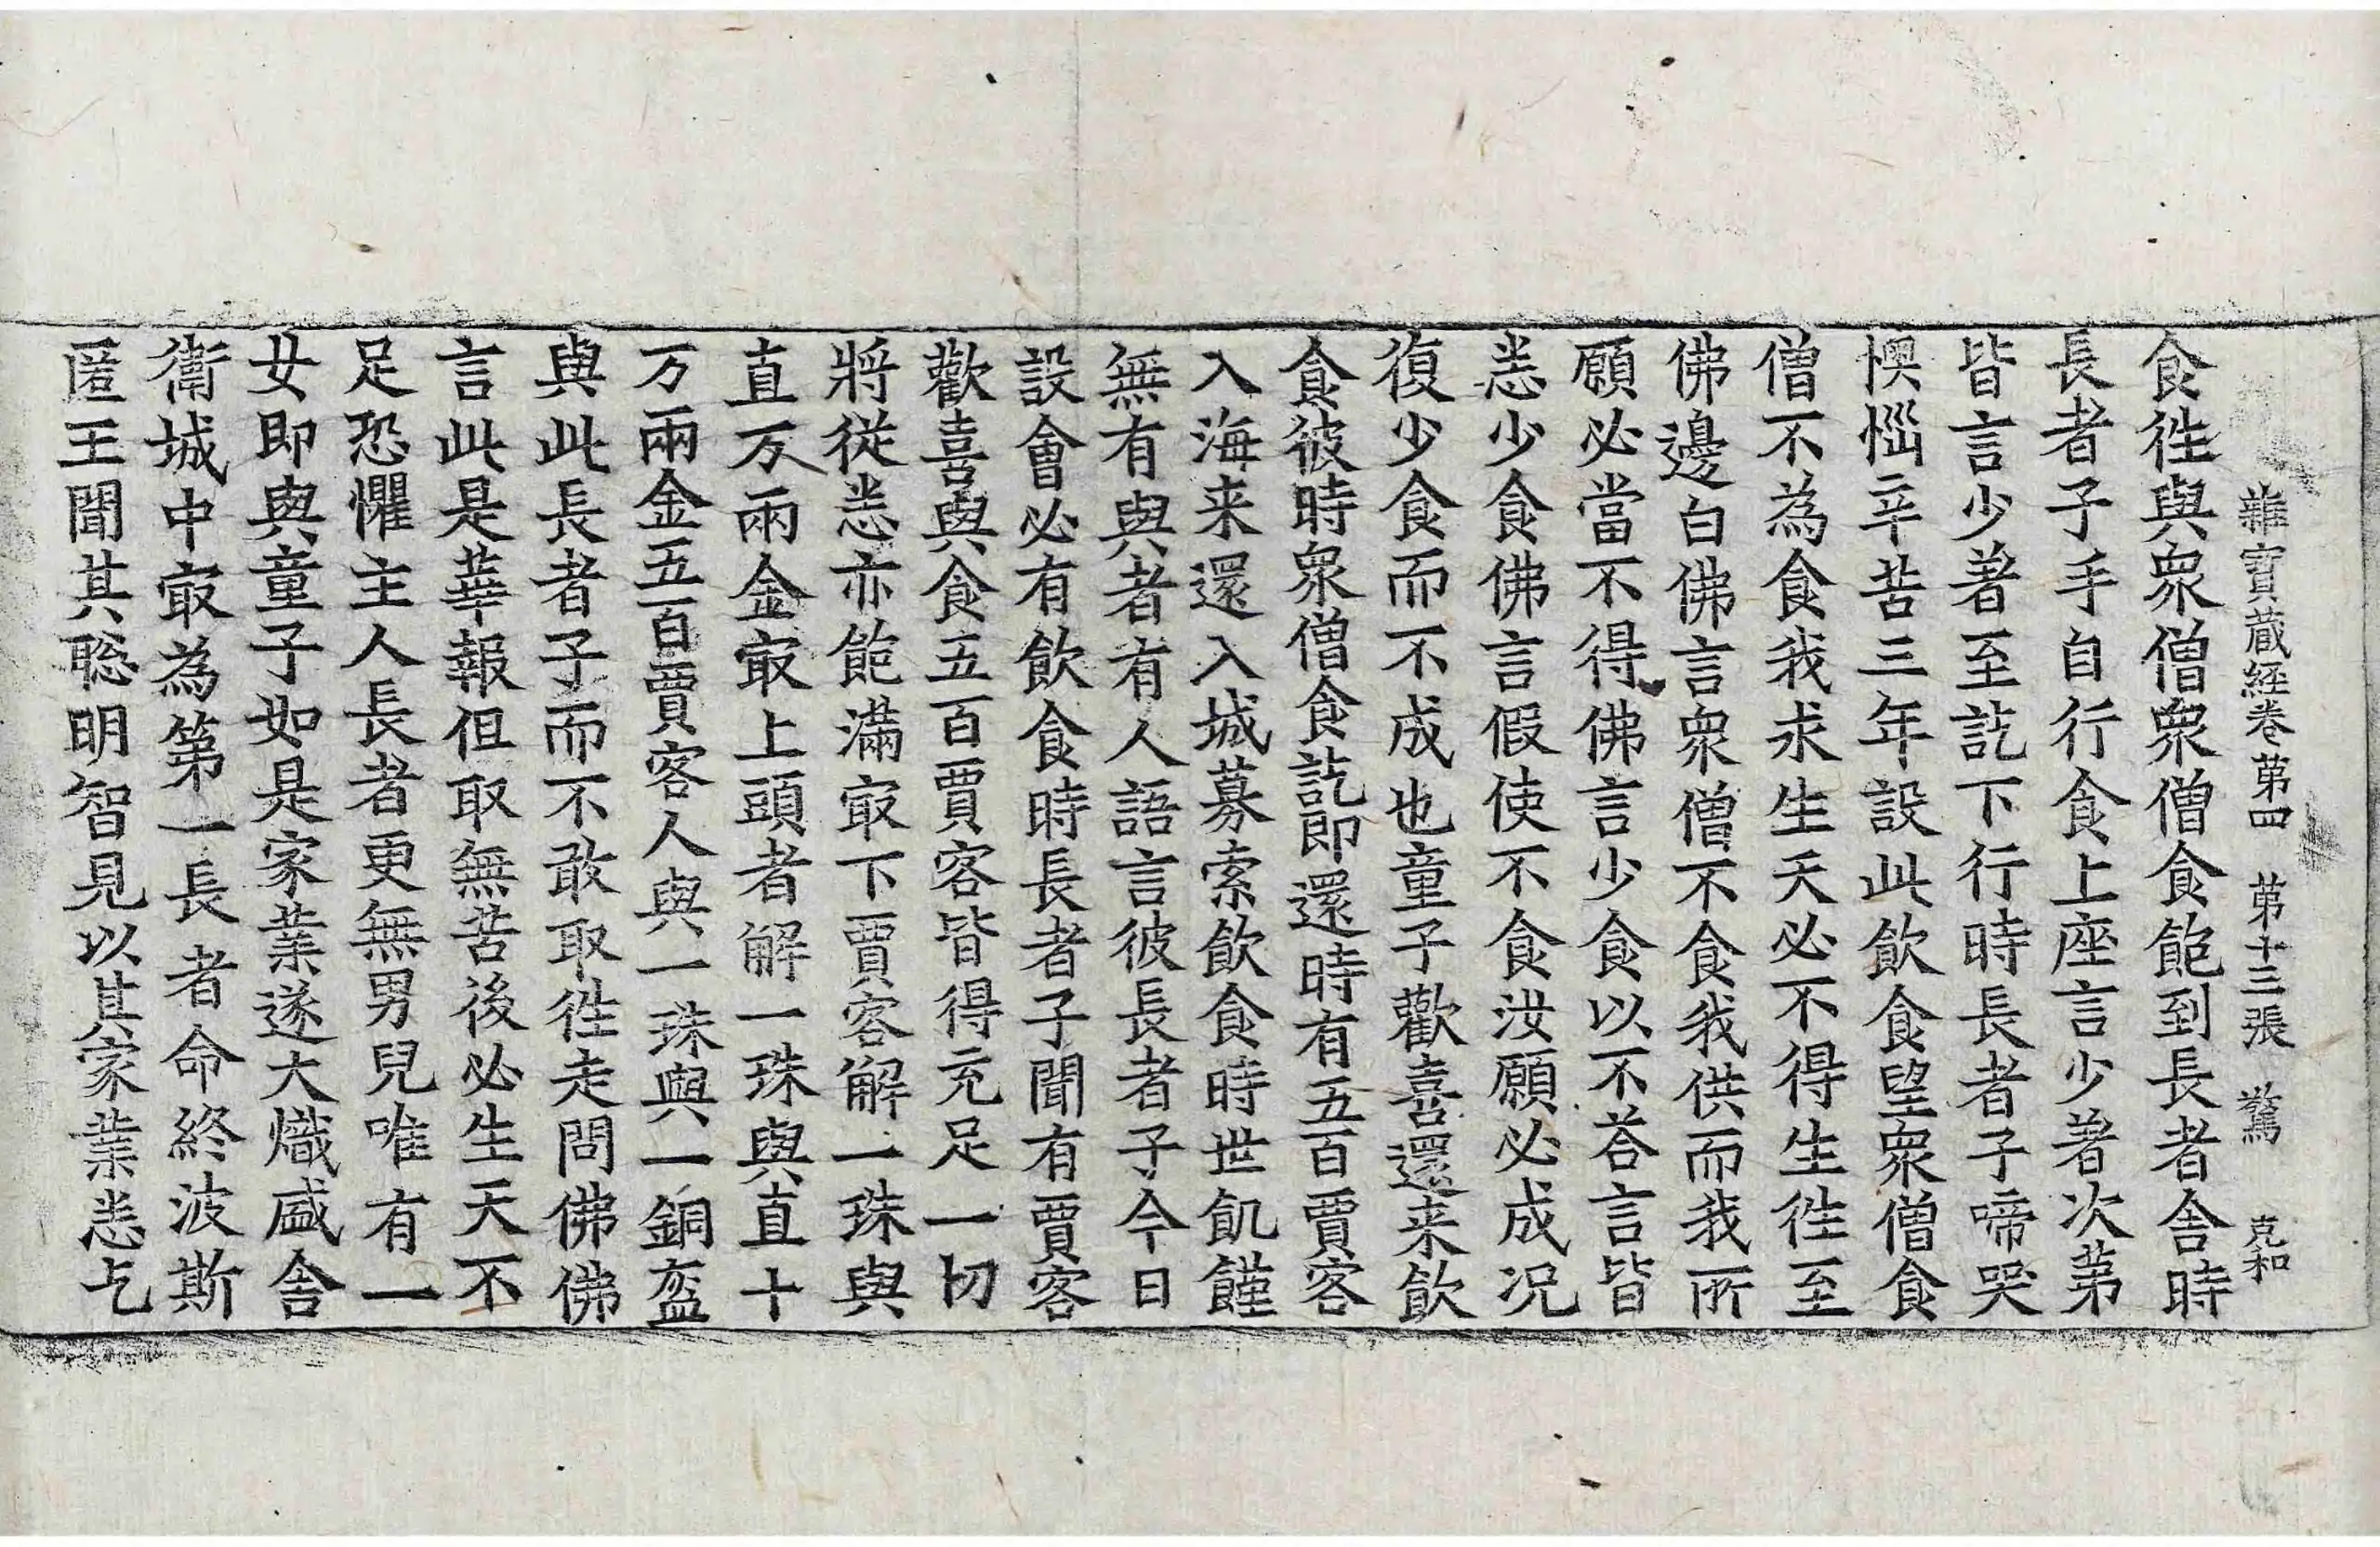 雜寶蔵経卷苐四　苐十三張　驚　克和
食徃與衆僧衆僧食飽到長者舍時
長者子手自行食上座言少著次苐
皆言少著至訖下行時長者子啼哭
懊惱辛苦三年設此飲食望衆僧食
僧不為食我求生天必不得生徃至
佛邊白佛言衆僧不食我供而我所
願必當不得佛言少食以不荅言皆
悉少食佛言假使不食汝願必成况
復少食而不成也童子歡喜還来飲
食彼時衆僧食訖即還時有五百賈客
入海来還入城募索飲食時世飢饉
無有與者有人語言彼長者子今日
設會必有飲食時長者子聞有賈客
歡喜與食五百賈客皆得充足一切
將從悉亦飽滿㝡下賈客解一珠與
直万兩金㝡上頭者解一珠與直十
万兩金五百賈客人與一珠與一銅盔
與此長者子而不敢取徃走問佛佛
言此是華報但取無苦後必生天不
足恐懼主人長者更無男兒唯有一
女即與童子如是家業遂大熾盛舍
衛城中㝡為第一長者命終波斯
匿王聞其聡明智見以其家業悉乞